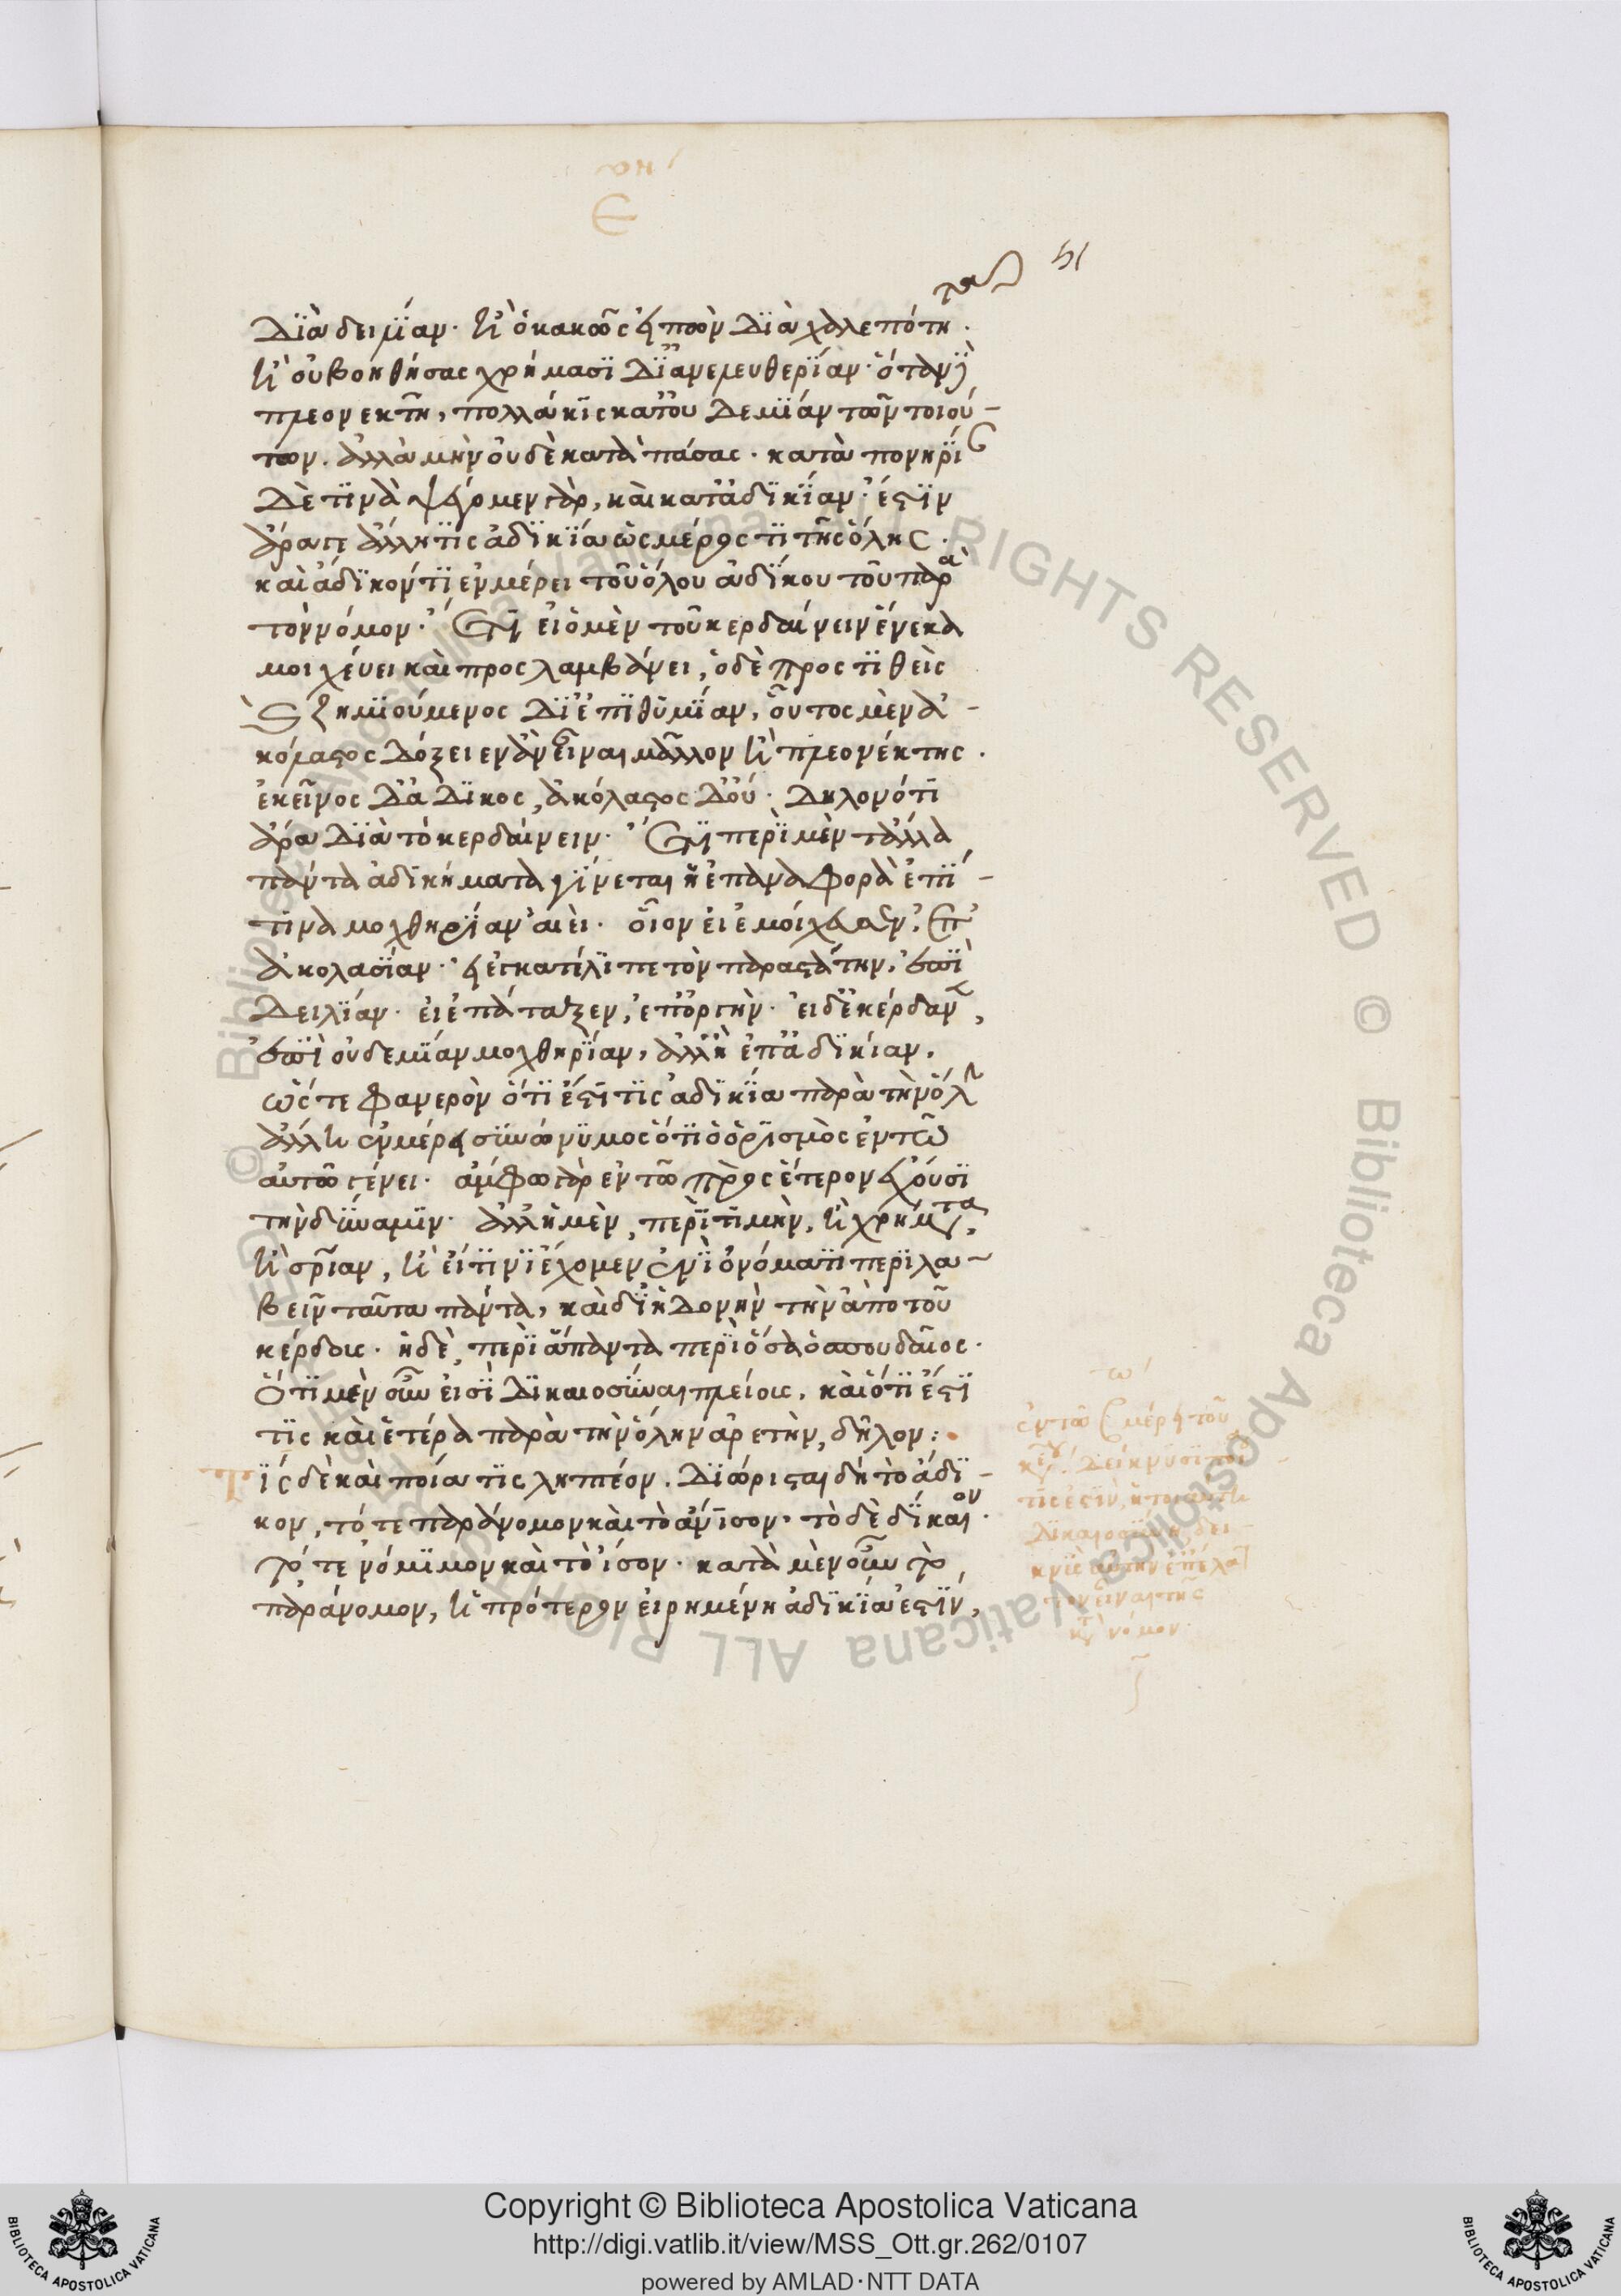 Ε
51
διὰ δειλίαν. ἢ ὁ κακῶς εἰπὼν διὰ χαλεπότητα.
ἢ οὐ βοηθήσας χρήμασι δι' ἀνελευθερίαν. ὅταν δὲ
πλεονεκτῆ, πολλάκις κατ' οὐδεμίαν τῶν τοιού-
των. ἀλλὰ μὴν οὐδὲ κατὰ πάσας. κατὰ πονηρίαν
δέ τινα ψέγομεν γὰρ, καὶ κατ' ἀδικίαν. ἔστιν
ἄρα γε ἄλλη τις ἀδικία ὡς μέρος τι τῆς ὅλης.
καὶ ἄδικόν τι ἐν μέρει τοῦ ὅλου ἀδίκου τοῦ παρὰ
τὸν νόμον. ἔτι εἰ ὁ μὲν τοῦ κερδαίνειν ἕνεκα
μοιχεύει καὶ προσλαμβάνει, ὁ δὲ προστιθεὶς
καὶ ζημιούμενος δι' ἐπιθυμίαν, οὗτος μὲν ἀ-
κόλαστος δόξειεν ἂν εἶναι μᾶλλον ἢ πλεονέκτης.
ἐκεῖνος δ' ἄδικος, ἀκόλαστος δ' οὔ. δῆλον ὅτι
ἄρα διὰ τὸ κερδαίνειν. ἔτι περὶ μὲν τἄλλα
πάντα ἀδικήματα γίνεται ἡ ἐπαναφορὰ ἐπί
τινα μοχθηρίαν ἀεί. οἷον εἰ ἐμοίχευσεν, ἐπ'
ἀκολασίαν. εἰ ἐγκατέλιπε τὸν παραστάτην, ἐπὶ
δειλίαν. εἰ ἐπάταξεν, ἐπ' ὀργὴν. εἰ δ' ἐκέρδανεν,
ἐπὶ οὐδεμίαν μοχθηρίαν, ἀλλ' ἢ ἐπ' ἀδικίαν.
ὥστε φανερὸν ὅτι ἔστι τις ἀδικία παρὰ τὴν ὅλην
ἄλλη ἐν μέρει συνώνυμος ὅτι ὁ ὁρισμὸς ἐν τῶ
αὐτῶ γένει. ἄμφω γὰρ ἐν τῶ πρὸς ἕτερον ἔχουσι
τὴν δύναμιν. ἀλλ' ἡ μὲν, περὶ τιμὴν, ἢ χρήματα,
ἢ σωτηρίαν, ἢ εἴ τινι ἔχομεν ἑνὶ ὀνόματι περιλα-
βεῖν ταῦτα πάντα, καὶ δι' ἡδονὴν τὴν ἀπὸ τοῦ
κέρδους. ἡ δὲ, περὶ ἅπαντα περὶ ὅσα ὁ σπουδαῖος.
ὅτι μὲν οὖν εἰσὶ δικαιοσύναι πλείους, καὶ ὅτι ἔστι
τις καὶ ἑτέρα παρὰ τὴν ὅλην ἀρετὴν, δῆλον:
τίς δὲ καὶ ποία τις ληπτέον. διώρισται δὴ τὸ ἄδι-
κον, τό τε παράνομον καὶ τὸ ἄνισον. τὸ δὲ δίκαιον.
τό τε νόμιμον καὶ τὸ ἴσον. κατὰ μὲν οὖν τὸ
παράνομον, ἡ πρότερον εἰρημένη ἀδικία ἐστίν,
ἐν τῶ μέρει τού
δείκνυσι
τίς ἐστιν, ἡ τοιαύτη
δικαιοσύνη. δει-
εἶναι τῆς
νόμον.
Copyright © Biblioteca Apostolica Vaticana
http://digi.vatlib.it/view/MSS_Ott.gr.262/0107
powered by AMLAD·NTT DATA
BIBLIOTECA APOSTOLICA VATICANA
BIBLIOTECA APOSTOLICA VATICANA
© Biblioteca Apostolica Vaticana ALL RIGHTS RESERVED © Biblioteca Apostolica Vaticana ALL RIGHTS RESERVED